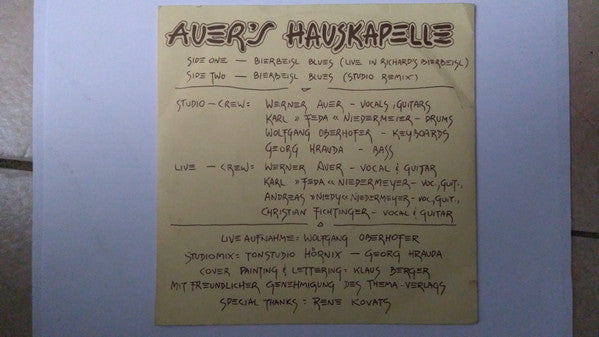 AUER'S HAUSKAPELLE
SIDE ONE — BIERBEISL BLUES (LIVE IN RICHARD'S BIERBEISL)
SIDE TWO — BIERBEISL BLUES (STUDIO REMIX)
STUDIO-CREW: WERNER AUER - VOCALS, GUITARS
KARL »FEDA« NIEDERMEIER - DRUMS
WOLFGANG OBERHOFER - KEYBOARDS
GEORG HRAUDA - BASS
LIVE - CREW: WERNER AUER - VOCAL & GUITAR
KARL »FEDA« NIEDERMEYER - VOC., GUIT.,
ANDREAS »NIEDY« NIEDERMEYER - VOC., GUIT.,
CHRISTIAN FICHTINGER - VOCAL & GUITAR
LIVEAUFNAHME: WOLFGANG OBERHOFER
STUDIOMIX: TONSTUDIO HÖRNIX — GEORG HRAUDA
COVER PAINTING & LETTERING: KLAUS BERGER
MIT FREUNDLICHER GENEHMIGUNG DES THEMA-VERLAGS
SPECIAL THANKS: RENE KOVATS